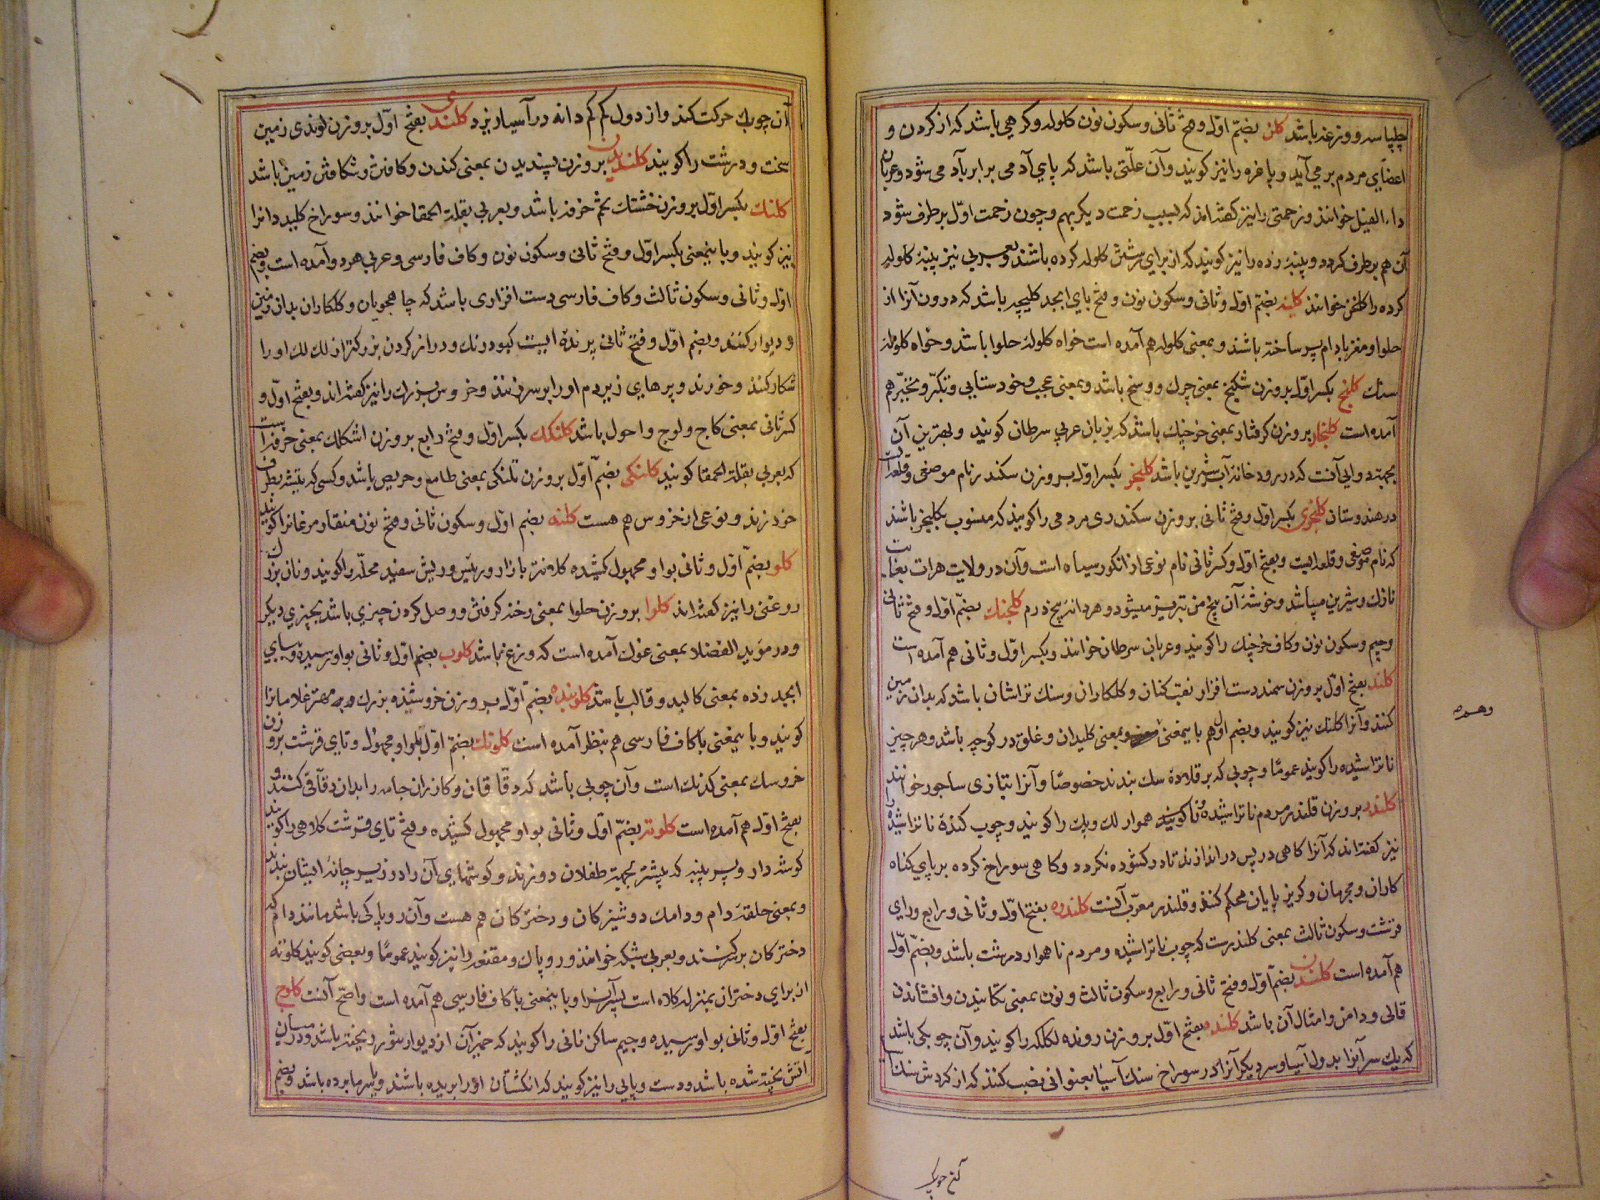 چلپاسه و وزغه باشد کلن بضمّ اوّل و فتح ثانی و سکون نون کلوله و کرهی باشد که از کردن و
اعضای مردم بر می آید و پاغره را نیز کویند و آن علّتی باشد که پای آدمی برابر باد می شود و عربان
داء الفیل خوانند و زحمتی را نیز کفته اند که بسبب زحمت دیکر بهم رسد و چون زحمت اوّل برطرف شود
آن هم برطرف کردد و پنبهٔ زده را نیز کویند که از برای رشتن کلوله کرده باشند و بعربی نیز پنبهٔ کلوله
کرده را کلن خوانند کلنبه بضمّ اوّل و ثانی و سکون نون و فتح بای ابجد کلیچه باشد که درون آنرا از
حلوا و مغز بادام پر ساخته باشند و بمعنی کلوله هم آمده است خواه کلولهٔ حلوا باشد و خواه کلولهٔ
سنک کلنج بکسر اوّل بر وزن شکنج بمعنی چرک و وسخ باشد و بمعنی عجب و خودستایی و تکبّر و تجبّر هم
آمده است کلنجار بر وزن کرفتار بمعنی خرچنک باشد که بزبان عربی سرطان کویند و بهترین آن
بجهت دوایی آنست که در رودخانهٔ آب شیرین باشد کلنجر بکسر اوّل بر وزن سکندر نام موضعی و قلعه ایست
در هندوستان کلنجری بکسر اوّل و فتح ثانی بر وزن سکندری مردمی را کویند که منسوب بکلنجر باشند
که نام موضعی و قلعه ایست و بفتح اوّل و کسر ثانی نام نوعی از انکور سیاه است و آن در ولایت هرات بغایت
نازک و شیرین میباشد و خوشهٔ آن پنج من تبریز میشود و هر دانه پنج درم کلنجک بضمّ اوّل و فتح ثانی
و جیم و سکون نون و کاف خرچنک را کویند و عربان سرطان خوانند و بکسر اوّل و ثانی هم آمده است
کلند بفتح اوّل بر وزن سمند دست افزار نقب کنان و کلکاران و سنک تراشان باشد که بدان زمین
کنند و آنرا کلنک نیز کویند و بضمّ اوّل هم باین معنی و بمعنی کلیدان و غلق در کوچه باشد و هر چیز
ناتراشیده را کویند عموما و چوبی که بر قلادهٔ سک بندند خصوصا و آنرا بتازی ساجور خوانند
کلندر بر وزن قلندر مردم ناتراشیده و ناهموار لک و پک را کویند و چوب کندهٔ ناتراشیده را
نیز کفته اند که آنرا کاهی در پس در اندازند تا در کشوده نکردد و کاهی سوراخ کرده بر پای کناه
کاران و مجرمان و کریز پایان محکم کنند و قلندر معرّب آنست کلندره بفتح اوّل و ثانی و رابع و رای
قرشت و سکون ثالث بمعنی کلندرست که چوب ناتراشیده و مردم ناهموار درشت باشد و بضمّ اوّل
هم آمده است کلندن بضمّ اوّل و فتح ثانی و رابع و سکون ثالث و نون بمعنی تکانیدن و افشاندن
قالی و دامن و امثال آن باشد کلنده بفتح اوّل بر وزن رونده لکلکه را کویند و آن چوبکی باشد
که یک سر آنرا بدول آسیا و سر دیکر آنرا در سوراخ سنک آسیا بعنوانی نصب کنند که از کردش سنک آسیا
وهره
آن چوبک
آن چوبک حرکت کند و از دول کم کم دانه در آسیا ریزد کلندی بفتح اوّل بر وزن لوندی زمین
سخت و درشت را کویند کلندیدن بر وزن پسندیدن بمعنی کندن و کافتن و شکافتن زمین باشد
کلنک بکسر اوّل بر وزن خشتک تخم خرفه باشد و بعربی بقلة الحمقا خوانند و سوراخ کلید دانرا
نیز کویند و باینمعنی بکسر اوّل و فتح ثانی و سکون نون و کاف فارسی و عربی هر دو آمده است و بضم
اوّل و ثانی و سکون ثالث و کاف فارسی دست افزاری باشد که چاهجویان و کلکاران بدان زمین
و دیوار کنند و بضم اوّل و فتح ثانی پرنده ایست کبود رنک و دراز کردن بزرکتر از لک لک او را
شکار کنند و خورند و پرهای زیر دم او را بر سر زنند و خروس بزرک را نیز کفته اند و بفتح اوّل و
کسر ثانی بمعنی کاج و لوج و احول باشد کلنکک بکسر اوّل و فتح رابع بر وزن اشکلک بمعنی خرفه است
که بعربی بقلة الحمقا کویند کلنکی بضمّ اوّل بر وزن تلنکی بمعنی طامع و حریص باشد و کسی که تیشه بطرف
خود زند و نوعی از خروس هم هست کلنه بضم اوّل و سکون ثانی و فتح نون منقار مرغانرا کویند
کلو بضمّ اوّل و ثانی بواو مجهول کشیده کلانتر بازار و رئیس و ریش سفید محلّه را کویند و نان بزرک
روغنی را نیز کفته اند کلوا بر وزن حلوا بمعنی رخنه کرفتن و وصل کردن چیزی باشد بچیزی دیکر
و در مؤید الفضلا بمعنی غوک آمده است که وزغ باشد کلوب بضم اوّل و ثانی بواو رسیده و ببای
ابجد زده بمعنی کالبد و قالب باشد کلوبنده بضمّ اوّل بر وزن خروشنده بزرک و مهتر غلامانرا
کویند و باینمعنی با کاف فارسی هم بنظر آمده است کلوتک بضمّ اوّل بواو مجهول و تای قرشت بر وزن
خروسک بمعنی کدنک است و آن چوبی باشد که دقّاقان و کازران جامه را بدان دقّاقی کنند و
بفتح اوّل هم آمده است کلوته بضمّ اوّل و ثانی بواو مجهول کشیده و فتح تای قرشت کلاهی را کویند
کوشه دار و پر پنبه که بیشتر بجهت طفلان دوزند و کوشهای آن را در زیر چانهٔ ایشان بندند
و بمعنی حلقهٔ دام و دامک دوشیزکان و دخترکان هم هست و آن روپاکی باشد مانند دام که
دخترکان بر سر کنند و بعربی شبکه خوانند و روپاک و مقنعه را نیز کویند عموما و بعضی کویند کلوته
از برای دختران بمنزلهٔ کلاه است پسرانرا و باینمعنی با کاف فارسی هم آمده است و اصحّ آنست کلوج
بفتح اوّل و ثانی بواو رسیده و جیم ساکن نانی را کویند که خمیر آن از دیوار تنور ریخته باشد و در میان
آتش پخته شده باشد و دست و پایی را نیز کویند که انکشتان او را بریده باشند و یا سرما برده باشد و بضم